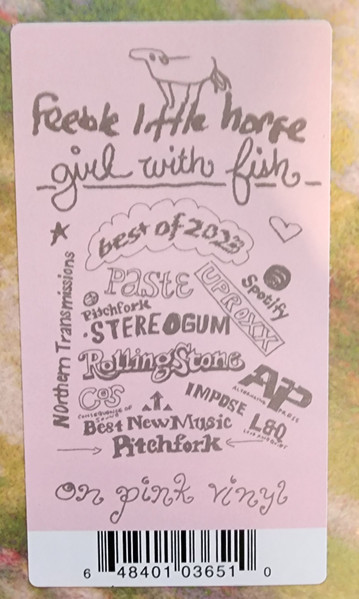 feeble little horse
girl with fish
best of 2023
Northern Transmissions
PASTE
UPROXX
Spotify
Pitchfork
STEREOGUM
RollingStone
CoS
CONSEQUENCE OF SOUND
AP
ALTERNATIVE PRESS
IMPOSE
L&Q
Best New Music
Pitchfork
on pink vinyl
6 48401 03651 0